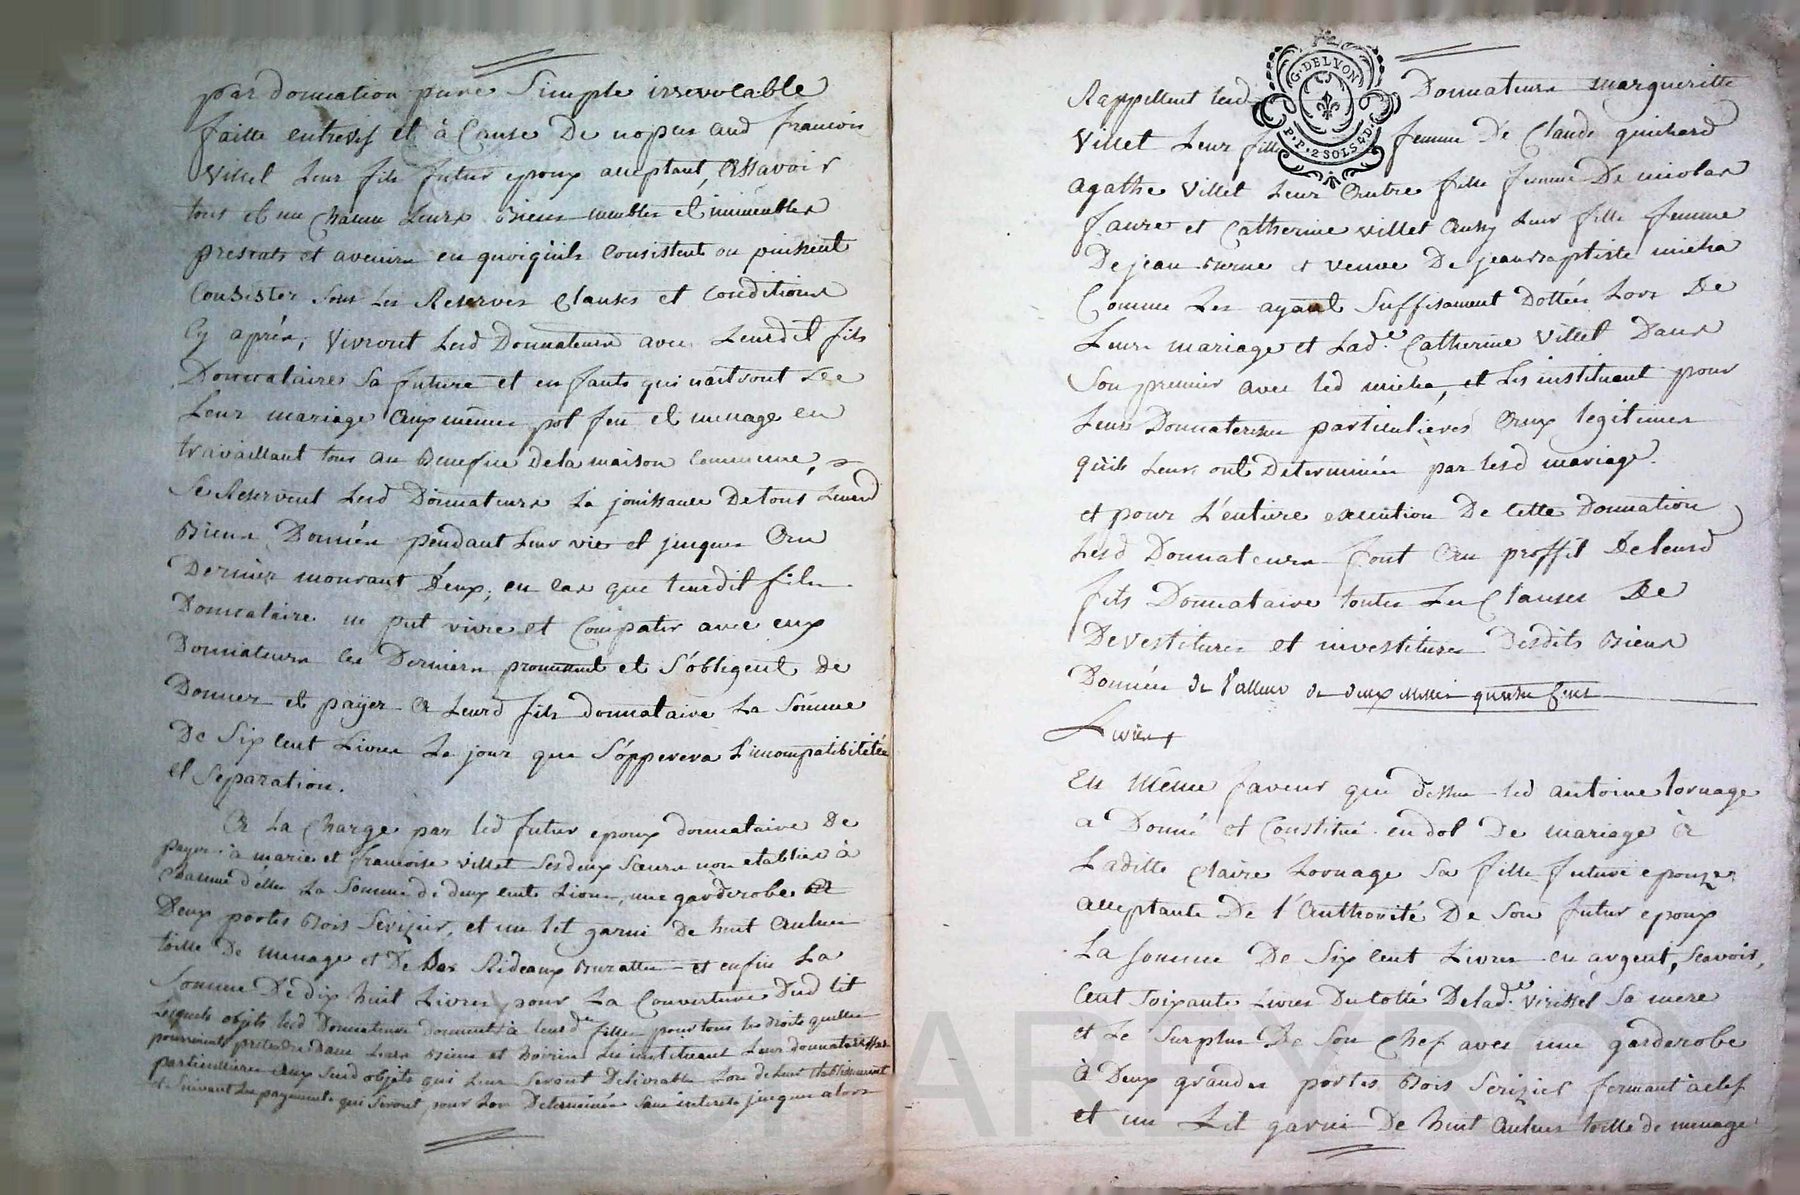 par donnation pure Simple irrevocable
faitte entrevif et à Cause De nopces aud francois
Villet Leur fils futur epoux acceptant, Assavoir
tous et un chacun Leurs Biens meubles et immeubles
presents et avenirs en quoiqu'ils Consistent ou puissent
Consister Sous Les Reserves Clauses et Conditions
Cy aprés, Vivront Lesd Donnateurs avec Leurdit fils
Donnataire Sa future et enfants qui naitront De
Leur mariage Aux mêmes pot feu et menage en
travaillant tous au Benefice De la maison Commune,
Se Reservent Lesd Donnateurs La jouissance De tous Leursd
Biens Donnés pendant Leur vie et jusques Au
Dernier mourant D'eux, en cas que Leurdit fils
Donnataire ne put vivre et Compatir avec eux
Donnateurs ces Derniers promettent et S'obligent De
Donner et payer A Leurd fils donnataire La Somme
De Six Cent Livres Le jour que S'opperera L'incompatibilitée
et Separation.
A La Charge par led futur epoux donnataire De
payer à marie et francoise Villet Ses deux Sœurs non etablies à
Chacune d'elles La Somme de deux cents Livres, une garderobe
Deux portes Bois Serizier, et un Lit garni De huit Aulnes
toille De menage et De Bas Rideaux Buratte et enfin La
Somme De dix huit Livres pour La Couverture Dud Lit
Lesquels objets lesd Donnateurs Donnent à leursde filles pour tous les droits quelles
pourroient pretendre Dans Leurs Biens et hoiries Les instituant Leurs donnataresses
particulieres Aux Susd objets qui Leur Seront Delivrables Lors de Leur Etablissement
et Suivant Les payements qui Seront pour Lors Determinés Sans interets jusques alors
G. DE LYON
P.P. 2 SOLS 4 D
Rappellent lesd Donnateurs margueritte
Villet Leur fille femme De Claude guichard
Agathe Villet Leur Autre fille femme De nicolas
faure et Catherine Villet Aussy Leur fille femme
De jean Brune et veuve De jean Baptiste micha
Comme Les ayant Suffisament Dottées Lors De
Leurs mariage et Lad.e Catherine Villet Dans
Son premier avec led micha, et Les instituent pour
Leurs Donnateresses particulieres Aux legitimes
qu'ils Leurs ont Determinés par lesd mariage.
et pour L'entiere execution De Cette Donnation
Lesd Donnateurs font Au proffit De leurd
fils Donnataire toutes Les Clauses De
Devestitures et investitures Desdits Biens
Donnés de Valleur de deux mille quatre Cens
Livres
En Même faveur que dessus led antoine Lornage
a Donné et Constitué en dot De mariage à
Laditte Claire Lornage Sa fille future epouze
acceptante De l'Authorité De Son futur epoux
La Somme De Six Cent Livres en argent, Scavoir,
Cent Soixante Livres Du Cotté De lad.e Sa mere
et Le Surplus De Son Chef avec une garderobe
à Deux grandes portes Bois Serizier fermant à clef
et un Lit garni De huit Aulnes toille de menage